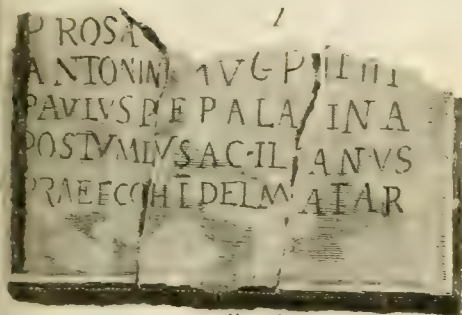 PROSA
ANTONINI AVG
PAVLVS P F PALATINA
POSTVMIVS ACILIANVS
PRAEF COH I DELMATAR